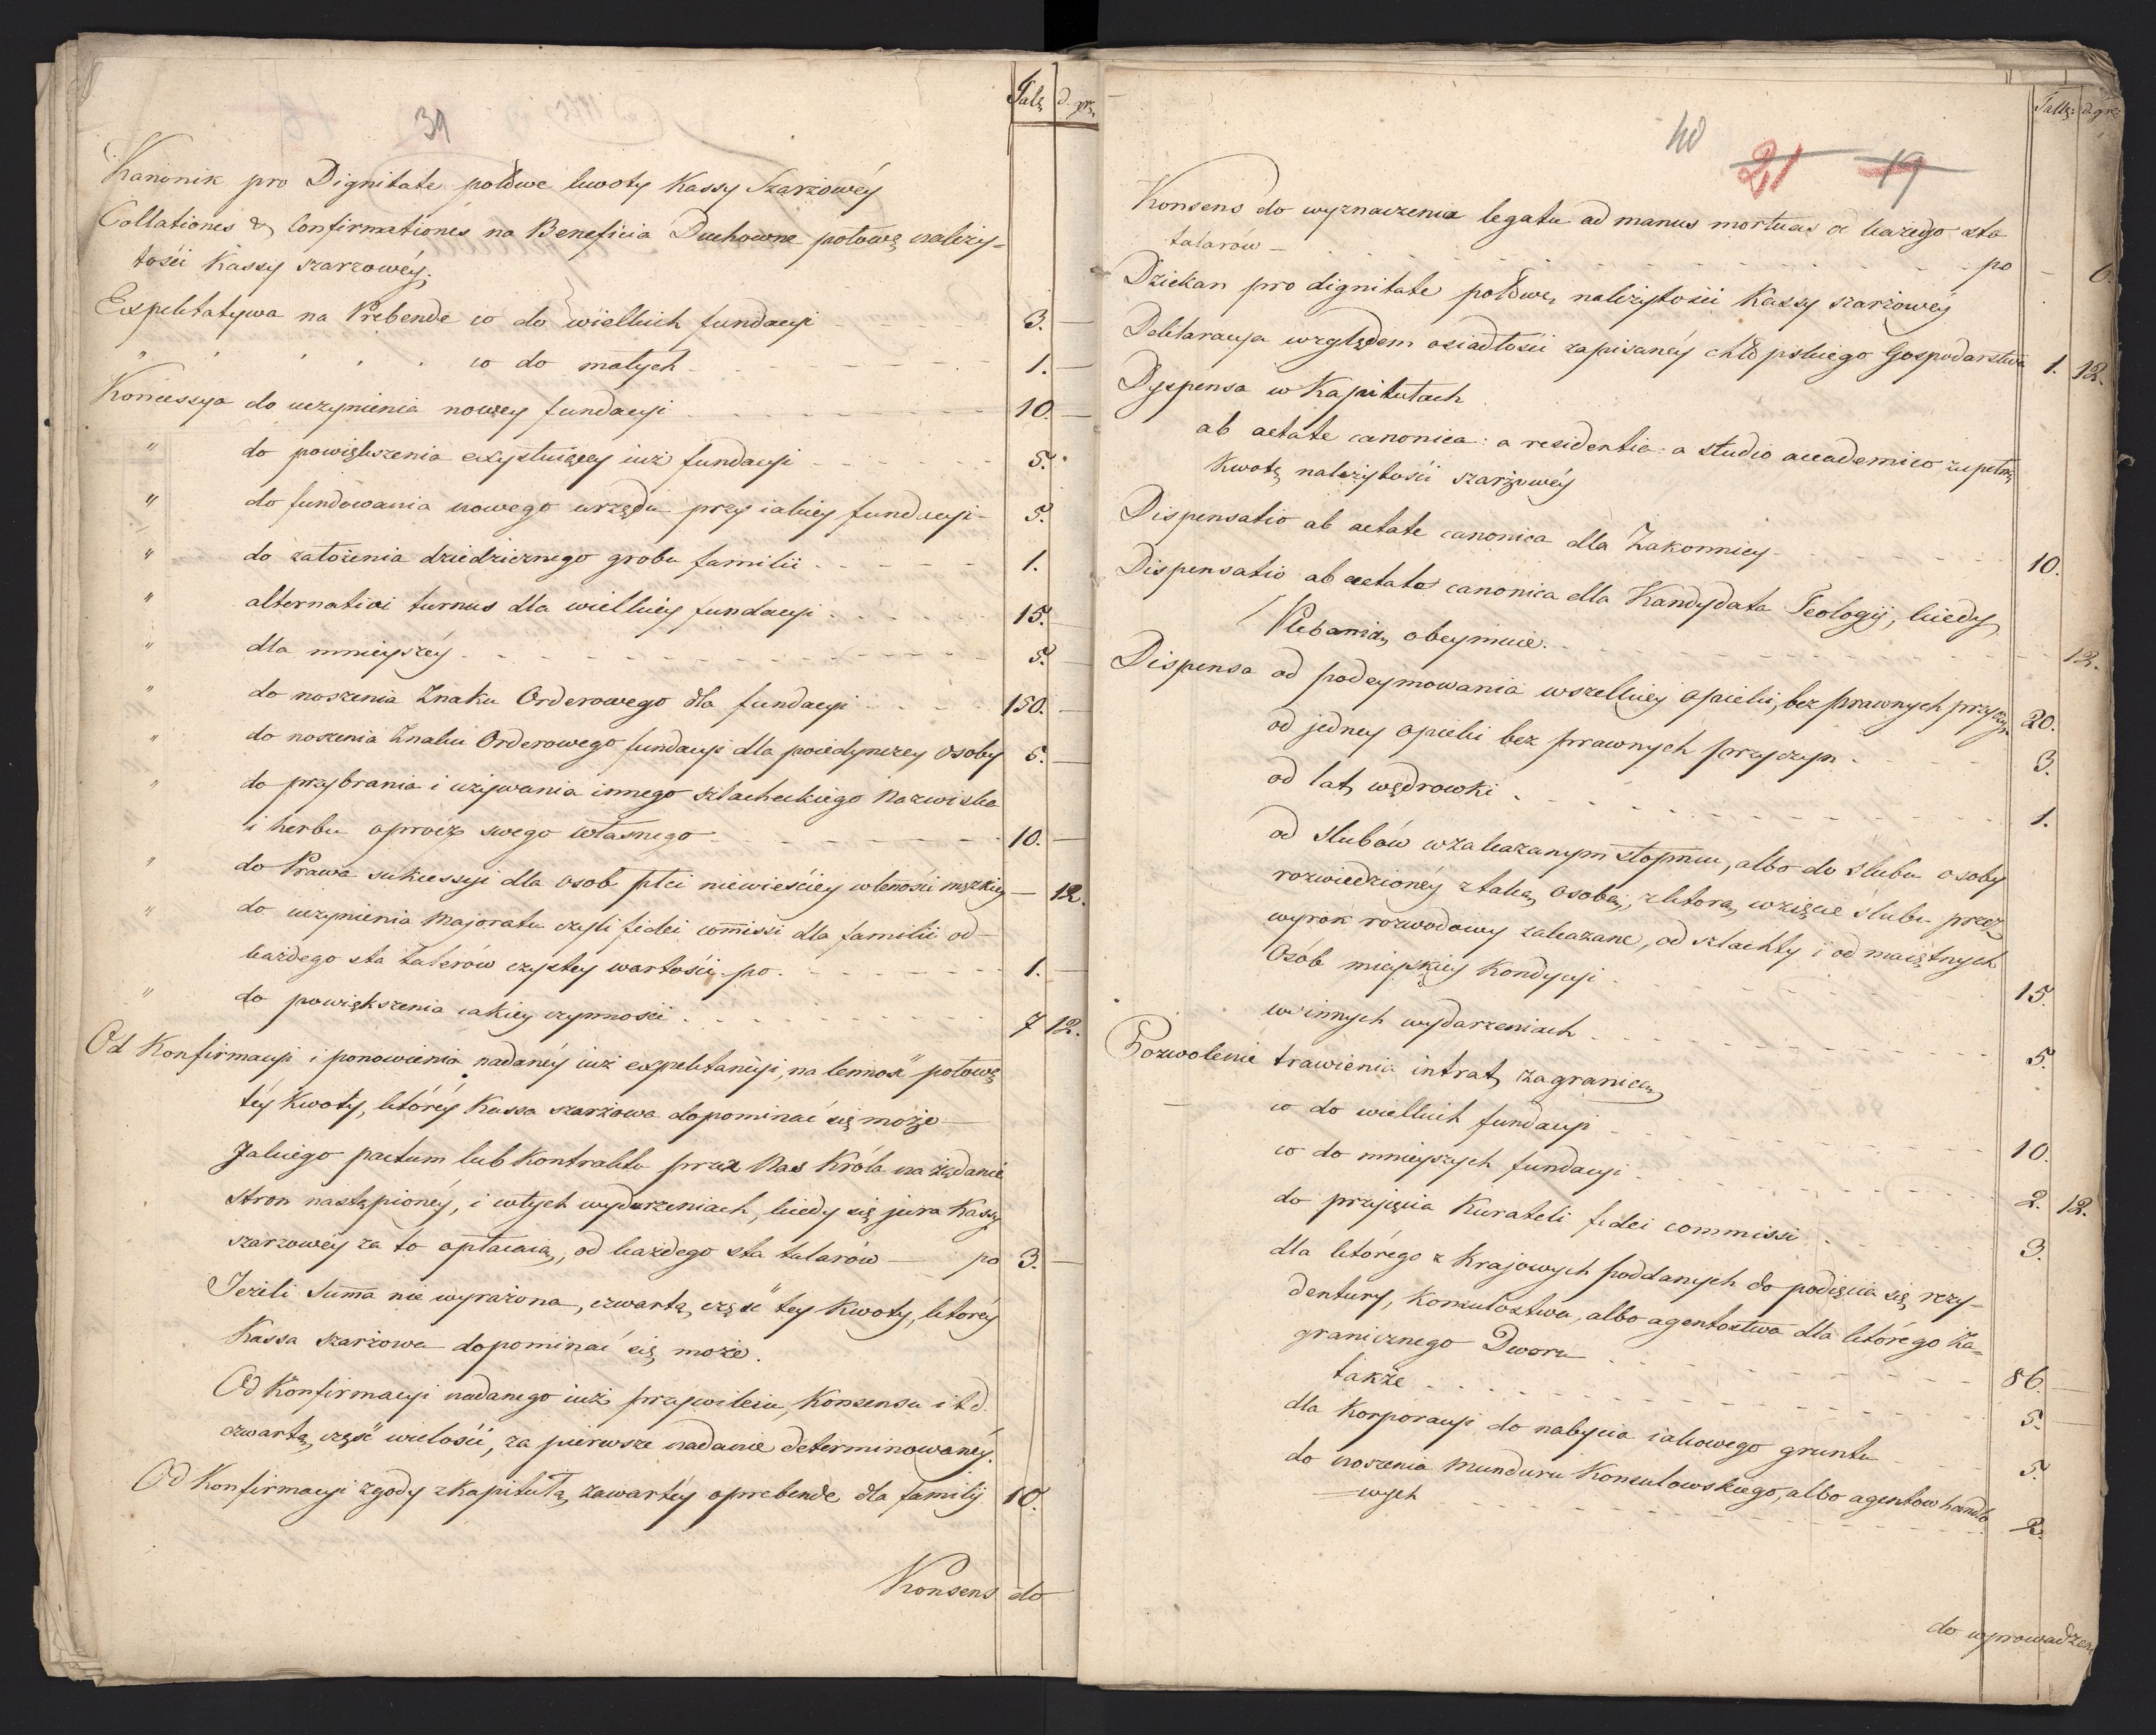 Tal. d. gr.
39
Kanonik pro Dignitate połowe kwoty Kassy Szarżowéy
Collationes & Confirmationes na Beneficia Duchowne połowę należy-
tości Kassy szarżowéy.
Expektatywa na Prebende co do wielkich fundacyi 3. —
" co do małych 1. —
Koncessya do uczynienia nowey fundacyi 10. —
" do powiększenia exystuiącey iuż fundacyi 5.
" do fundowania nowego urzędu przy iakiey fundacyi 5.
" do założenia dziedzicznego grobu familii 1.
" alternativi turnus dla wielkiey fundacyi 15. —
" dla mnieyszéy 5. —
" do noszenia Znaku Orderowego dla fundacyi 150. —
" do noszenia Znaku Orderowego fundacyi dla poiedynczey osoby 5. —
" do przybrania i używania innego szlacheckiego Nazwiska
i herbu oprócz swego własnego 10. —
" do Prawa sukcessyi dla osob płci niewieściey w lenności męzkiey — 12.
" do uczynienia Majoratu czyli fidei comissi dla familii od
każdego sta talerów czystey wartości po 1. —
" do powiększenia takiey czynności 7 12.
Od Konfirmacyi i ponowienia nadanéy iuż expektancyi, na lenność połowę
téy Kwoty, któréy Kassa szarżowa dopominać się może —
Jakiego pactum lub Kontraktu przez Nas Króla na żądanie
stron nastąpionéy, i w tych wydarzeniach, kiedy się jura Kassy
szarżowéy za to opłacaią, od każdego sta talarów — po 3. —
Jeżeli Suma nie wyrażona, czwartą część tey Kwoty, któréy
Kassa szarżowa dopominać się może.
Od Konfirmacyi nadanego iuż przywileiu, Konsensu i t d.
czwartą część wielości, za pierwsze nadanie determinowanéy.
Od Konfirmacyi zgody z Kapitułą zawartéy o prebende dla familij 10.
Konsens do
Talr: d. gr.
40 21 19
Konsens do wyznaczenia legatu ad manus mortuas od każdego sta
talarów — po — 6.
Dziekan pro dignitate połowę należytości Kassy szarżowéy
Deklaracya względem osiadłości zapisanéy chłopskiego Gospodarstwa 1. 12.
Dyspensa w Kapitułach
ab aetate canonica: a residentia: a studio academico zupełną
Kwotę należytości szarżowéy
Dispensatio ab aetate canonica dla Zakonnicy 10.
Dispensatio ab aetate canonica dla Kandydata Teologij, kiedy
Plebanią obeymuie. 12.
Dispensa od podeymowania wszelkiey opieki, bez prawnych przyczyn 20.
od jedney opieki bez prawnych przyczyn 3.
od lat wędrowki 1.
od slubów w zakazanym stopniu, albo do slubu osoby
rozwiedzionéy z taką osobą, z ktorą wzięcie ślubu przez
wyrok rozwodowy zakazane, od szlachty i od maiętnych
Osób mieyskiey Kondycyi 15.
w innych wydarzeniach 5.
Pozwolenie trawienia intrat zagranicą
co do wielkich fundacyi 10.
co do mnieyszych fundacyi 2. 12.
do przyięcia Kurateli fidei commissi 3.
dla którego z Krajowych poddanych do podięcia się rezy-
dentury, Konsulostwa, albo agentostwa dla którego Za-
granicznego Dworu 86. —
także 5. —
dla Korporacyi do nabycia iakowego gruntu 5.
do noszenia Munduru Konsulowskiego, albo agentow handlo-
wych 2.
do wprowadzen